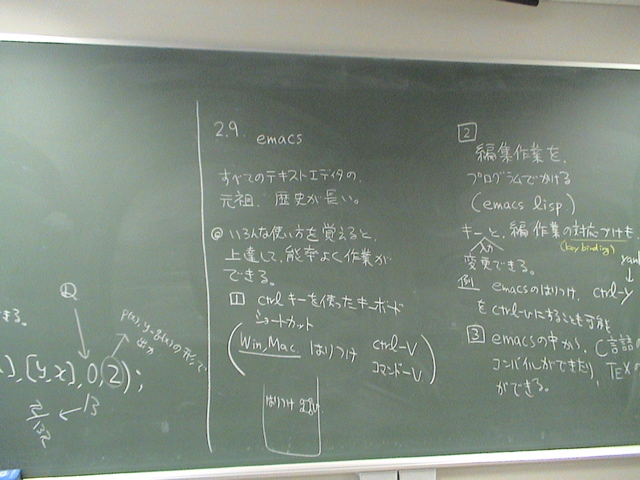 きる。
Q
p(x), y, g(x) の形で
出力
], [y, x], 0, 2);
13
2.9. emacs
すべてのテキストエディタの、
元祖. 歴史が長い。
◎ いろんな使い方を覚えると、
上達して、能率よく作業が
できる。
1 ctrlキーを使ったキーボード
ショートカット
(Win, Mac はりつけ ctrl-V
コマンド-V)
はりつけ
2
編集作業を、
プログラムでかける
(emacs lisp)
キーと、編作業の対応づけも、
(key binding)
変更できる。
yank
例 emacsのはりつけ, ctrl-y
をctrl-vにすることも可能
3 emacsの中から、C言語の
コンパイルができたり、TEXの
ができる。